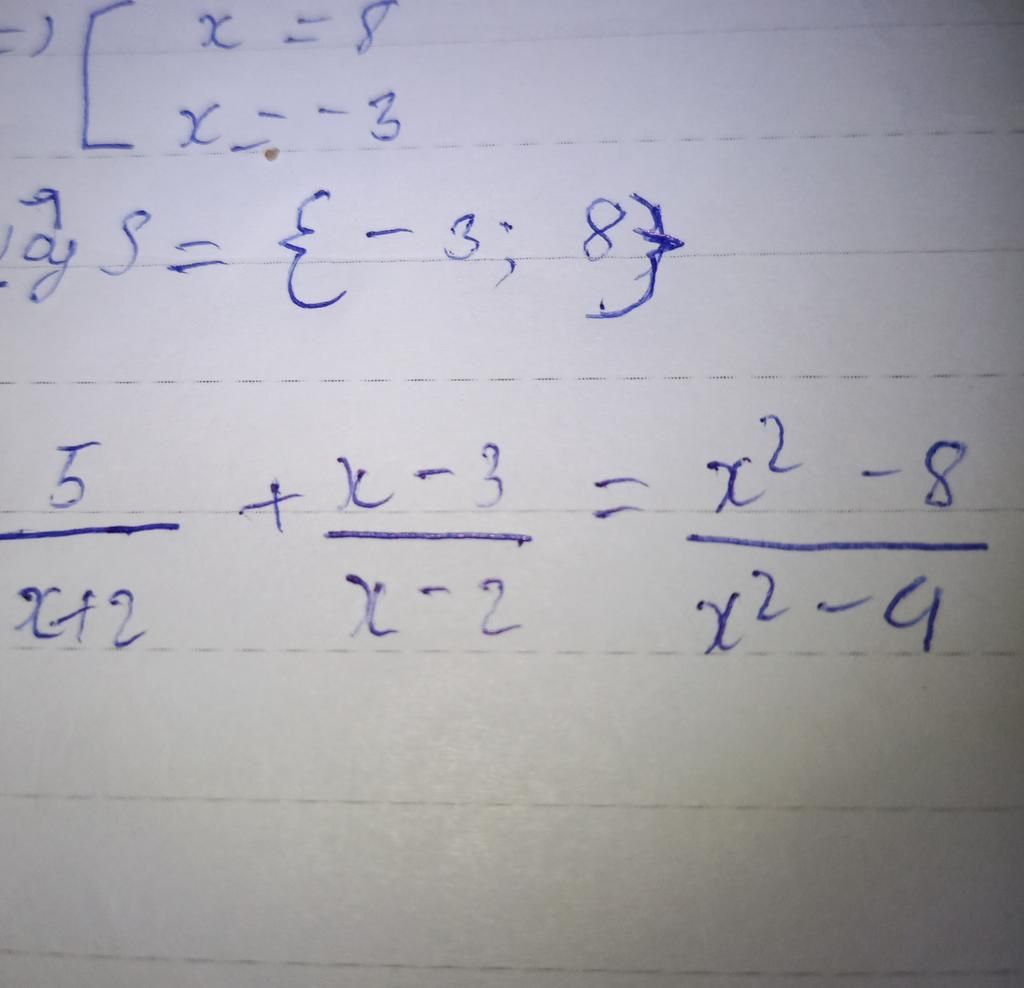 => [ x = 8
x = -3
Vậy S = {-3; 8}
5/(x+2) + (x-3)/(x-2) = (x² - 8)/(x² - 4)